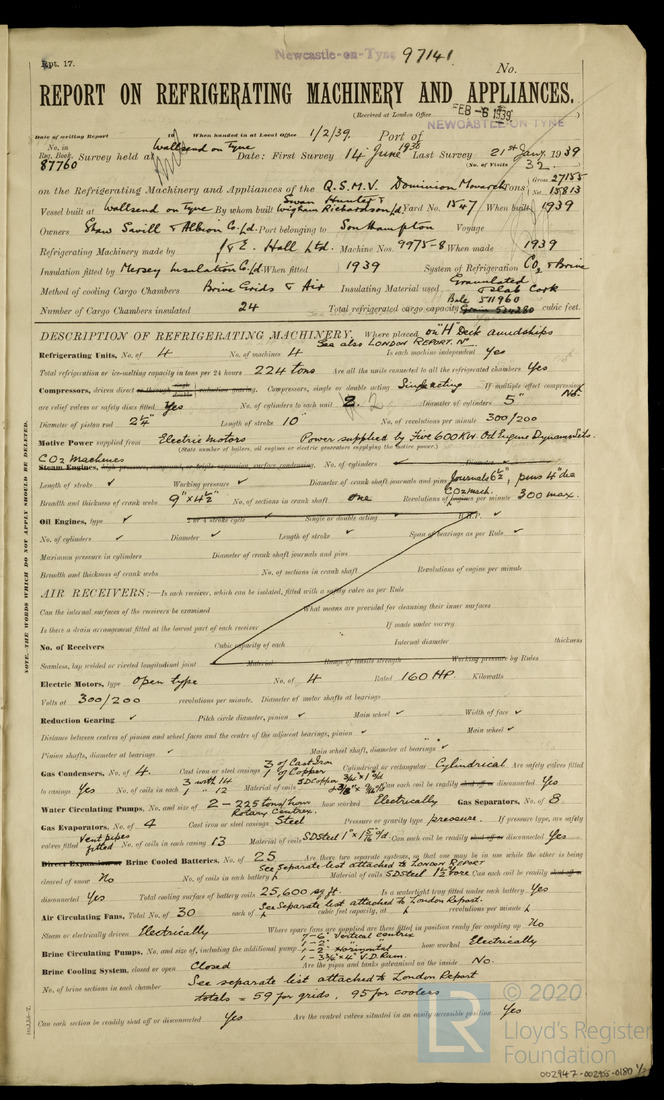 Rpt. 17.
Newcastle-on-Tyne 97141
No.
REPORT ON REFRIGERATING MACHINERY AND APPLIANCES.
(Received at London Office FEB -6 1939)
NEWCASTLE-ON-TYNE
Date of writing Report 19 When handed in at Local Office 1/2/39. Port of
No. in Reg. Book 87760 Survey held at Wallsend on Tyne Date: First Survey 14 June 1938 Last Survey 21st Jany. 1939
(No. of Visits 32)
on the Refrigerating Machinery and Appliances of the Q.S.M.V. Dominion Monarch Tons { Gross 27155 Net 15813
Vessel built at Wallsend on Tyne By whom built Swan Hunter & Wigham Richardson Ld Yard No. 1547 When built 1939
Owners Shaw Savill & Albion Co. Ld. Port belonging to Southampton Voyage
Refrigerating Machinery made by J & E. Hall Ltd. Machine Nos. 9975-8 When made 1939
Insulation fitted by Mersey Insulation Co. Ld. When fitted 1939 System of Refrigeration CO2 & Brine
Method of cooling Cargo Chambers Brine Grids & Air Insulating Material used Granulated & slab Cork
Number of Cargo Chambers insulated 24 Total refrigerated cargo capacity Bale 511960 Grain 534280 cubic feet.
DESCRIPTION OF REFRIGERATING MACHINERY. Where placed on "H" Deck amidships
See also LONDON REPORT. No
Refrigerating Units, No. of 4 No. of machines 4 Is each machine independent Yes
Total refrigeration or ice-melting capacity in tons per 24 hours 224 tons Are all the units connected to all the refrigerated chambers Yes
Compressors, driven direct or through single double reduction gearing. Compressors, single or double acting Single acting If multiple effect compression No.
are relief valves or safety discs fitted Yes No. of cylinders to each unit 2 Diameter of cylinders 5"
Diameter of piston rod 2¼" Length of stroke 10" No. of revolutions per minute 300/200
Motive Power supplied from Electric motors Power supplied by Five 600 KW Oil Engine Dynamo Sets.
(State number of boilers, oil engines or electric generators supplying the motive power.)
CO2 Machines
Steam Engines, high pressure, compound, or triple expansion, surface condensing. No. of cylinders ✓ Diameter ✓
Length of stroke ✓ Working pressure ✓ Diameter of crank shaft journals and pins Journals 6½", pins 4" dia
Breadth and thickness of crank webs 9" x 4½" No. of sections in crank shaft one Revolutions of engines per minute CO2 mach. 300 max.
Oil Engines, type ✓ 2 or 4 stroke cycle ✓ Single or double acting ✓ B.H.P. ✓
No. of cylinders ✓ Diameter ✓ Length of stroke ✓ Span of bearings as per Rule ✓
Maximum pressure in cylinders Diameter of crank shaft journals and pins
Breadth and thickness of crank webs No. of sections in crank shaft Revolutions of engine per minute
AIR RECEIVERS:—Is each receiver, which can be isolated, fitted with a safety valve as per Rule
Can the internal surfaces of the receivers be examined What means are provided for cleansing their inner surfaces
Is there a drain arrangement fitted at the lowest part of each receiver If made under survey
No. of Receivers Cubic capacity of each Internal diameter thickness
Seamless, lap welded or riveted longitudinal joint Material Range of tensile strength Working pressure by Rules
Electric Motors, type Open type No. of 4 Rated 160 HP Kilowatts
Volts at 300/200 revolutions per minute. Diameter of motor shafts at bearings
Reduction Gearing ✓ Pitch circle diameter, pinion ✓ Main wheel ✓ Width of face ✓
Distance between centres of pinion and wheel faces and the centre of the adjacent bearings, pinion ✓ Main wheel ✓
Pinion shafts, diameter at bearings ✓ Main wheel shaft, diameter at bearings ✓
Gas Condensers, No. of 4. Cast iron or steel casings 3 of Cast Iron 1 of Copper Cylindrical or rectangular Cylindrical Are safety valves fitted
to casings Yes No. of coils in each 3 with 14 1 " 12 Material of coils SD Copper Can each coil be readily shut off or disconnected Yes
Water Circulating Pumps, No. and size of 2 - 225 tons/hour Rotary Centrex. how worked Electrically Gas Separators, No. of 8
Gas Evaporators, No. of 4 Cast iron or steel casings Steel Pressure or gravity type pressure. If pressure type, are safety
valves fitted Vent pipes fitted No. of coils in each casing 13 Material of coils SD Steel 1" x 1 5/16 o/d. Can each coil be readily shut off or disconnected Yes
Direct Expansion or Brine Cooled Batteries, No. of 25 Are there two separate systems, so that one may be in use while the other is being
See Separate list attached to LONDON REPORT
cleared of snow No No. of coils in each battery Material of coils SD Steel 1½ bore Can each coil be readily shut off or
disconnected Yes Total cooling surface of battery coils 25,600 sq ft. Is a watertight tray fitted under each battery Yes
See Separate list attached to London Report.
Air Circulating Fans, Total No. of 30 each of cubic feet capacity, at revolutions per minute
Steam or electrically driven Electrically Where spare fans are supplied are these fitted in position ready for coupling up No
Brine Circulating Pumps, No. and size of, including the additional pump 7-6" Vertical centrex 1-2" " 1-2" Horizontal 1-3¾" x 4" V.D. Ram. how worked Electrically
Brine Cooling System, closed or open Closed Are the pipes and tanks galvanised on the inside No.
No. of brine sections in each chamber See separate list attached to London Report
totals = 59 for grids, 95 for coolers
Can each section be readily shut off or disconnected Yes Are the control valves situated in an easily accessible position Yes
NOTE.—THE WORDS WHICH DO NOT APPLY SHOULD BE DELETED.
LR © 2020
Lloyd's Register
Foundation
002947-002955-0180 1/2